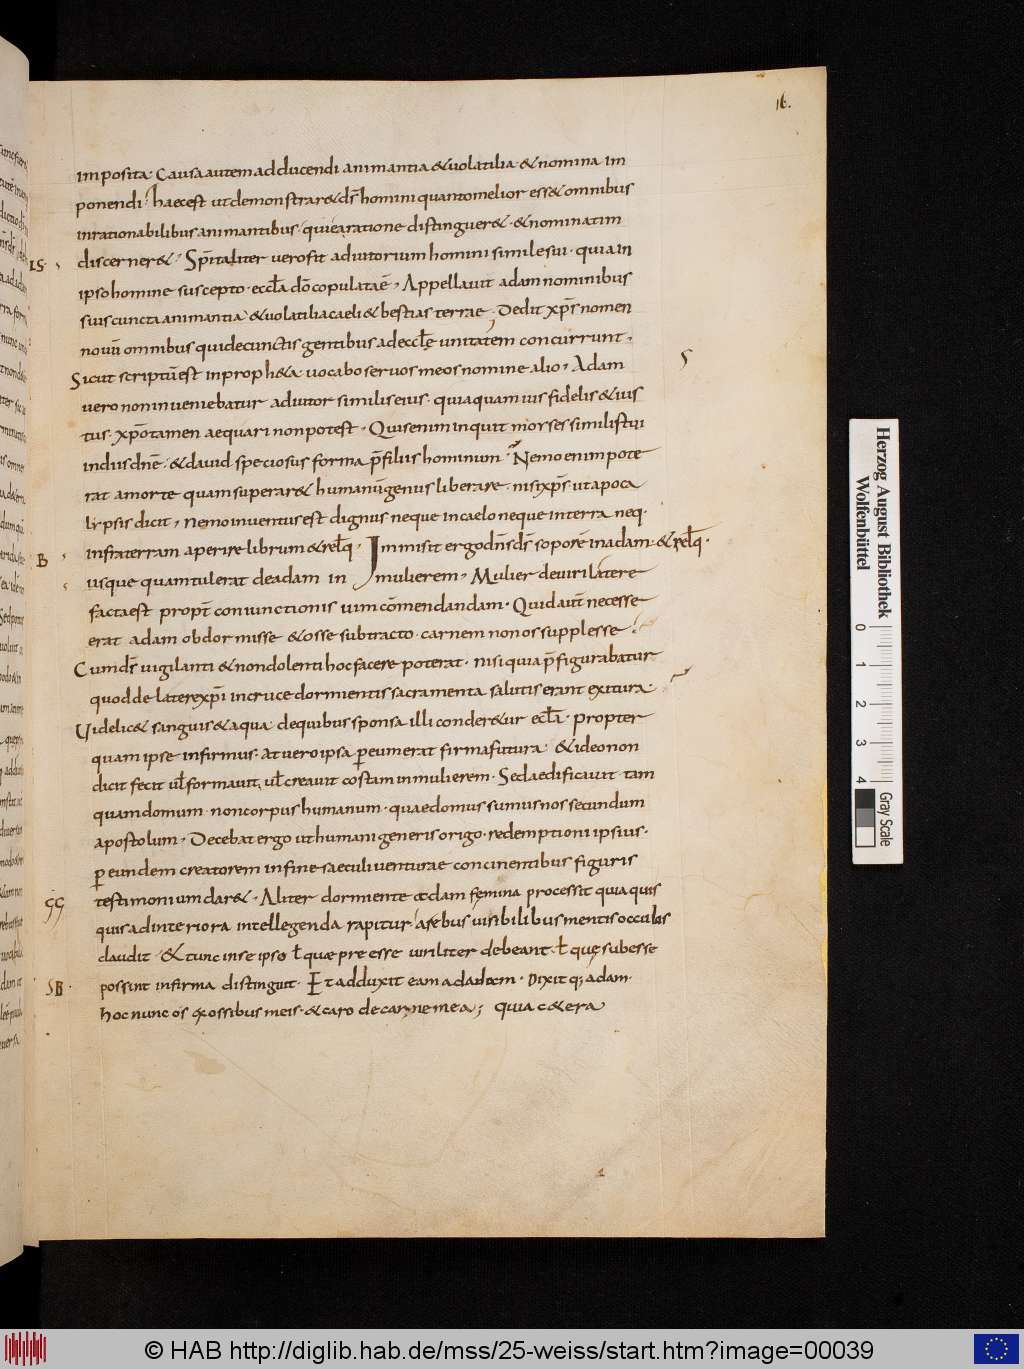 16.
imposita. Causa autem adducendi animantia & uolatilia & nomina im
ponendi. haec est ut demonstrar& ds̄ homini quanto melior ess& omnibus
inrationabilibus animantibus. qui ea ratione distinguer& & nominatim
IS
discerner&. Sp̄italiter uero fit adiutorium homini simile sui. quia in
ipso homine suscepto. eccl̄a dō copulata ē, Appellauit adam nominibus
suis cuncta animantia & uolatilia caeli & bestias terrae. Dedit xp̄s nomen
nouū omnibus qui de cunctis gentibus ad eccl̄ę unitatem concurrunt.
S
Sicut scriptū est in proph&a uocabo seruos meos nomine alio, Adam
uero non inueniebatur adiutor similis eius. quia quamuis fidelis & ius
tus. xp̄o tamen aequari non potest. Quis enim inquit moises similis tui
in diis dn̄e. & dauid speciosus forma p̄ filiis hominum. Nemo enim pote
rat a morte quam superar& humanū genus liberare. nisi xp̄s. ut apoca
lypsis dicit, nemo inuentus est dignus neque in caelo neque in terra neq.
B
infra terram aperire librum & rel̄q. Immisit ergo dn̄s ds̄ soporē in adam. & rel̄q.
usque quam tulerat de adam in mulierem, Mulier de uiri latere
facta est propt̄ coniunctionis uim cōmendandam. Quid aut̄ necesse
erat adam obdormisse & osse subtracto. carnem non os supplesse.
Cum ds̄ uigilanti & non dolenti hoc facere poterat. nisi quia p̄figurabatur
quod de latere xp̄i in cruce dormientis sacramenta salutis erant exitura.
Videlic& sanguis & aqua. de quibus sponsa illi conder&ur ecl̄a. propter
quam ipse infirmus. at uero ipsa p eum erat firma futura. & ideo non
dicit fecit ul̄ formauit, ul̄ creauit costam in mulierem. Sed aedificauit tam
quam domum. non corpus humanum. quae domus sumus nos secundum
apostolum. Decebat ergo ut humani generis origo. redemptioni ipsius.
p eundem creatorem in fine saeculi uenturae concinentibus figuris
GG
testimonium dar&. Aliter dormiente adam femina processit quia quis
quis ad interiora intellegenda rapitur a rebus uisibilibus mentis oculos
claudit. & tunc in se ipso l̄ quae preesse uiriliter debeant. l̄ quę subesse
SB
possint infirma distinguit. Et adduxit eam ad adam. Dixit q; adam.
hoc nunc os ex ossibus meis. & caro de carne mea; quia c&era
Herzog August Bibliothek
Wolfenbüttel
0 1 2 3 4
Gray Scale
© HAB http://diglib.hab.de/mss/25-weiss/start.htm?image=00039